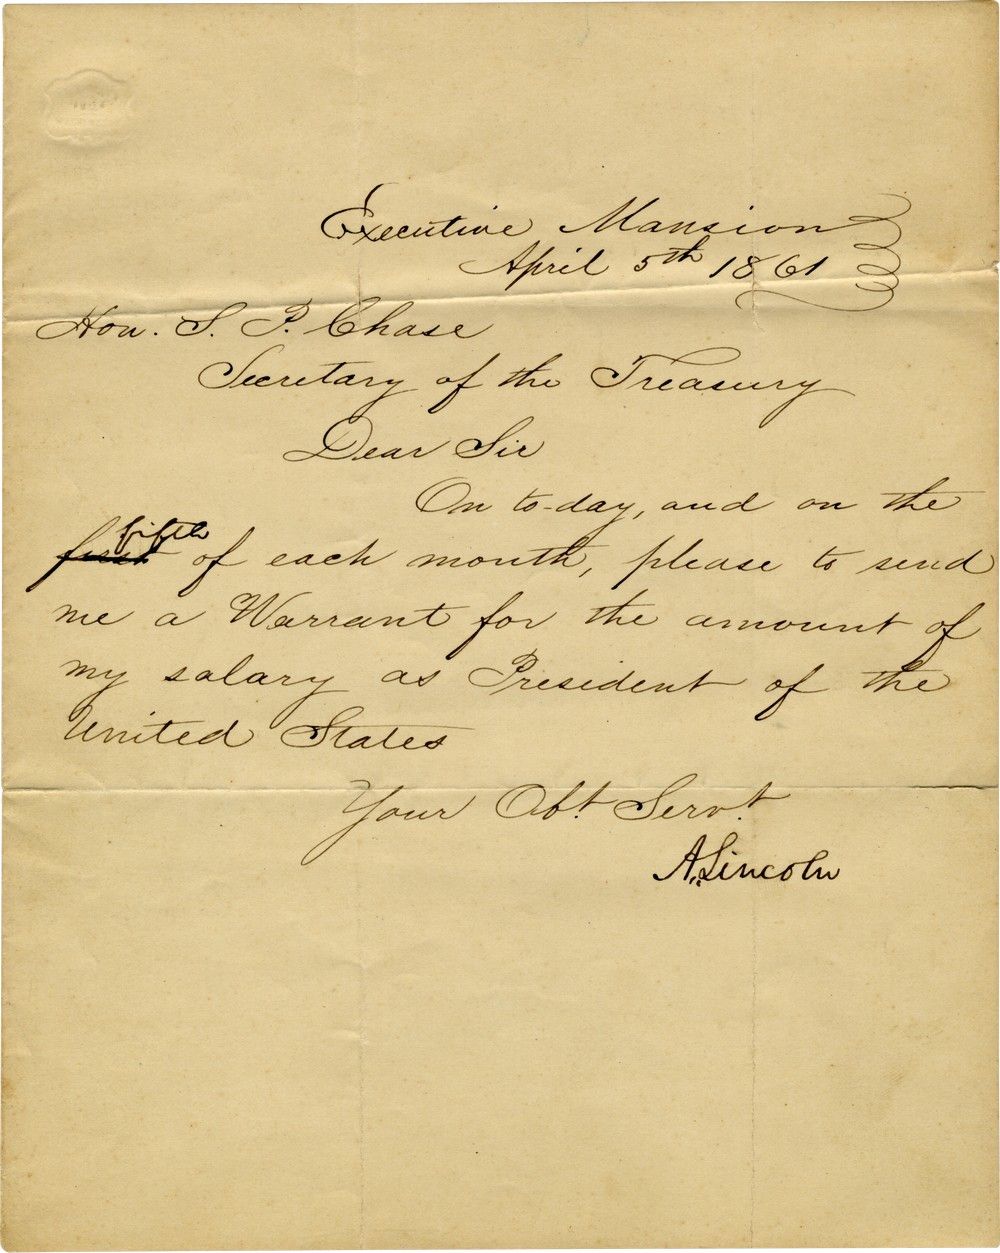 Executive Mansion
April 5th 1861
Hon. S. P. Chase
Secretary of the Treasury
Dear Sir
On to-day, and on the
fifth
first of each month, please to send
me a Warrant for the amount of
my salary as President of the
United States
Your Obt. Servt.
A. Lincoln